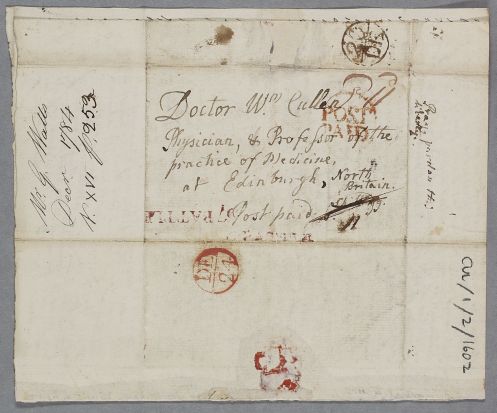 Doctor Wm Cullen
Physician, & Professor of the
practice of Medicine,
at Edinburgh, North
Britain.
Post paid
POST
PAID
DE
24
Mr G. Watts
Decr. 1784
N. XVI f. 253
Pray pardon this
CUL/1/2/1602